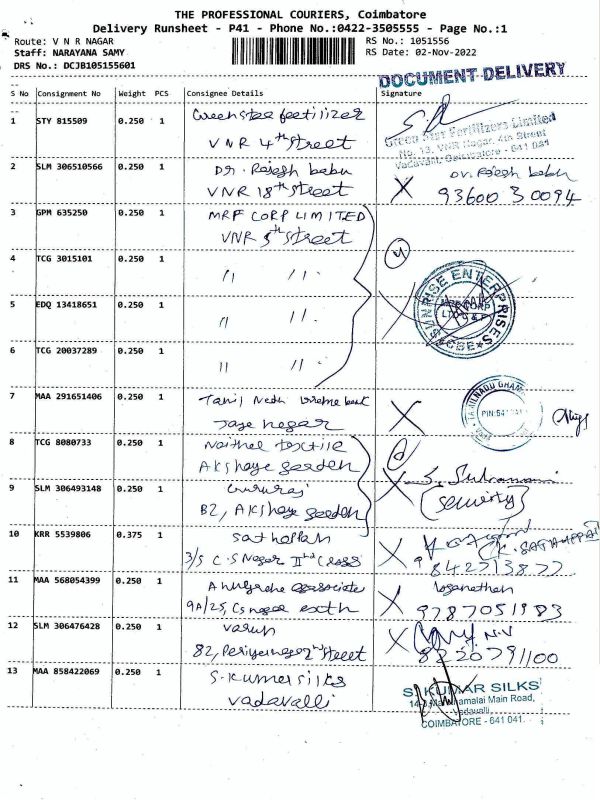 THE PROFESSIONAL COURIERS, Coimbatore
Delivery Runsheet - P41 - Phone No.:0422-3505555 - Page No.:1
Route: V N R NAGAR RS No.: 1051556
Staff: NARAYANA SAMY RS Date: 02-Nov-2022
DRS No.: DCJB105155601
DOCUMENT DELIVERY
S No Consignment No Weight PCS Consignee Details Signature
1 STY 815509 0.250 1 Greenstar fertilizer
VNR 4th Street
Green Star Fertilizers Limited
No. 13, VNR Nagar, 4th Street
Vadavalli, Coimbatore - 641 041
2 SLM 306510566 0.250 1 Dr. Rajesh babu Dr. Rajesh babu
VNR 18th Street X 93600 30094
3 GPM 635250 0.250 1 MRF CORP LIMITED
VNR 5th Street
4 TCG 3015101 0.250 1 " " 4
SUNRISE ENTERPRISES
MRF CORP
LTD
CBE
5 EDQ 13418651 0.250 1 " "
6 TCG 20037289 0.250 1 " "
7 MAA 291651406 0.250 1 Tamil Nadu
Jaya nagar X
TAMILNADU GRAM
8 TCG 8080733 0.250 1 textile
Akshaya garden
9 SLM 306493148 0.250 1 Gururaj
B2, Akshaya garden X S. Subramani
(Security)
10 KRR 5539806 0.375 1 Sathappan
3/5 C.S Nagar IInd Cross X
9842713877
11 MAA 568054399 0.250 1 Anugraha associate Loganathan
9A/25, Cs nagar extn X 9787051983
12 SLM 306476428 0.250 1 Varun N.V
82, Periyanagar 2nd Street X 8220791100
13 MAA 858422069 0.250 1 S. Kumar silks
Vadavalli
S. KUMAR SILKS
Main Road,
Vadavalli,
COIMBATORE - 641 041.